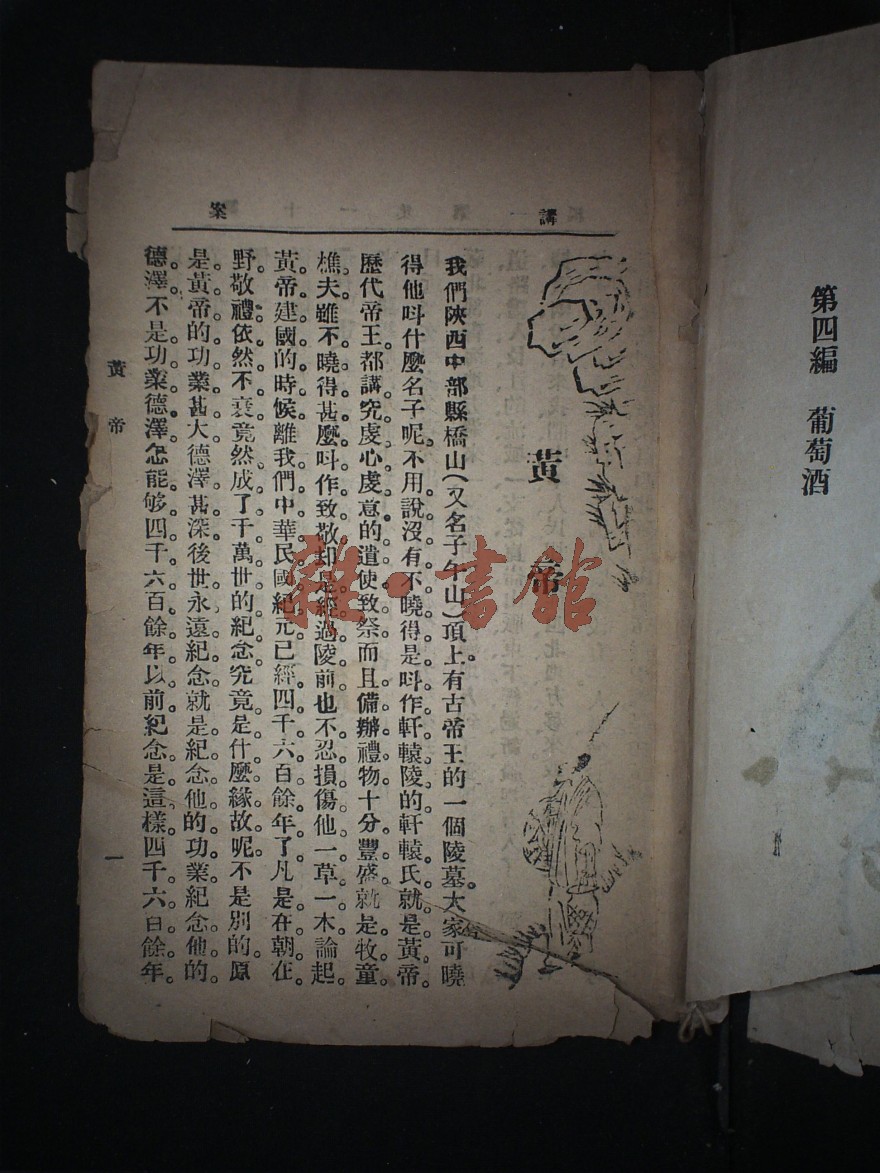 第四編　葡萄酒
講一案
黃帝
我們陝西中部縣橋山(又名子午山)頂上有古帝王的一個陵墓。大家可曉
得他呌什麼名子呢。不用說沒有不曉得是呌作軒轅陵的軒轅氏。就是黃帝。
歷代帝王。都講究虔心虔意的遣使致祭。而且備辦禮物。十分豐盛。就是牧童。
樵夫。雖不曉得甚麼呌作致敬。却是經過陵前。也不忍損傷他一草一木。論起
黃帝。建國的時候。離我們中華民國紀元。已經四千六百餘年了。凡是在朝在
野。敬禮依然不衰。竟然成了千萬世的紀念。究竟是什麼緣故呢。不是別的。原
是黃帝的功業甚大。德澤甚深。後世永遠紀念。就是紀念他的功業。紀念他的
德澤。不是功業德澤。怎能够四千六百餘年以前。紀念是這樣。四千六百餘年。
黃帝
一
雜·書館